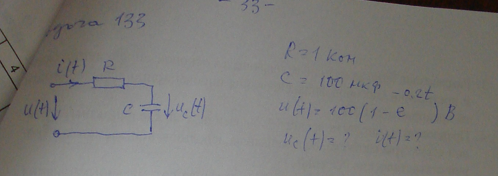 - 33 -
задача 133
4
i(t) R
u(t) C u_c(t)
R = 1 Ком
C = 100 мкф
u(t) = 100(1 - e^{-0,2t}) В
u_c(t) = ? i(t) = ?